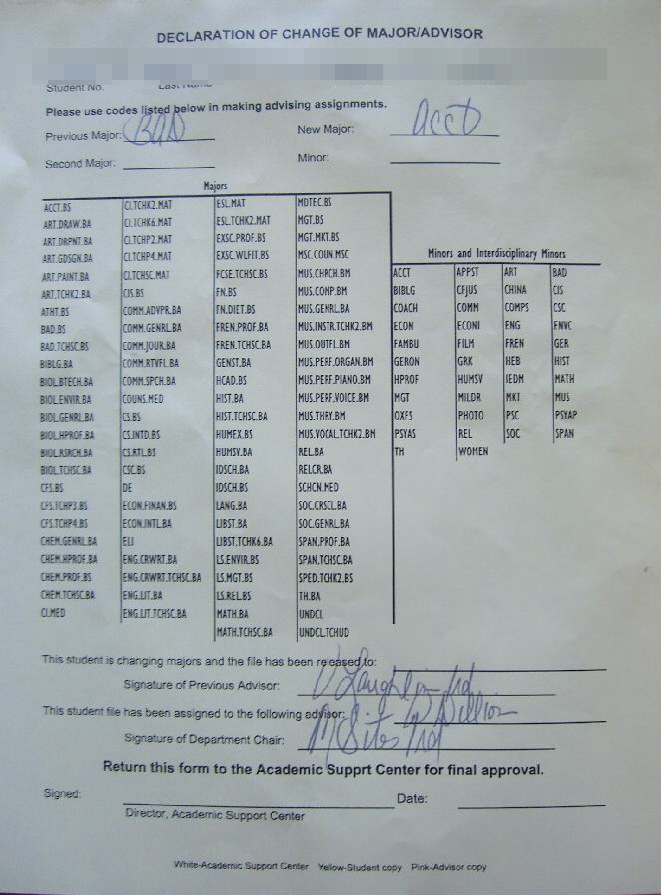 DECLARATION OF CHANGE OF MAJOR/ADVISOR
Student No. Last Name
Please use codes listed below in making advising assignments.
Previous Major: BAD New Major: ACCT
Second Major: Minor:
Majors
ACCT.BS CI.TCHK2.MAT ESL.MAT MDTEC.BS
ART.DRAW.BA CI.TCHK6.MAT ESL.TCHK2.MAT MGT.BS
ART.DRPNT.BA CI.TCHP2.MAT EXSC.PROF.BS MGT.MKT.BS
ART.GDSGN.BA CI.TCHP4.MAT EXSC.WLFIT.BS MSC.COUN.MSC
ART.PAINT.BA CI.TCHSC.MAT FCSE.TCHSC.BS MUS.CHRCH.BM
ART.TCHK2.BA CIS.BS FN.BS MUS.COMP.BM
ATHT.BS COMM.ADVPR.BA FN.DIET.BS MUS.GENRL.BA
BAD.BS COMM.GENRL.BA FREN.PROF.BA MUS.INSTR.TCHK2.BM
BAD.TCHSC.BS COMM.JOUR.BA FREN.TCHSC.BA MUS.OUTFI.BM
BIBLG.BA COMM.RTVFL.BA GENST.BA MUS.PERF.ORGAN.BM
BIOL.BTECH.BA COMM.SPCH.BA HCAD.BS MUS.PERF.PIANO.BM
BIOL.ENVIR.BA COUNS.MED HIST.BA MUS.PERF.VOICE.BM
BIOL.GENRL.BA CS.BS HIST.TCHSC.BA MUS.THRY.BM
BIOL.HPROF.BA CS.INTD.BS HUMEX.BS MUS.VOCAL.TCHK2.BM
BIOL.RSRCH.BA CS.RTL.BS HUMSV.BA REL.BA
BIOL.TCHSC.BA CSC.BS IDSCH.BA RELCR.BA
CFS.BS DE IDSCH.BS SCHCN.MED
CFS.TCHP3.BS ECON.FINAN.BS LANG.BA SOC.CRSCL.BA
CFS.TCHP4.BS ECON.INTL.BA LIBST.BA SOC.GENRL.BA
CHEM.GENRL.BA ELI LIBST.TCHK6.BA SPAN.PROF.BA
CHEM.HPROF.BA ENG.CRWRT.BA LS.ENVIR.BS SPAN.TCHSC.BA
CHEM.PROF.BS ENG.CRWRT.TCHSC.BA LS.MGT.BS SPED.TCHK2.BS
CHEM.TCHSC.BA ENG.LIT.BA LS.REL.BS TH.BA
CI.MED ENG.LIT.TCHSC.BA MATH.BA UNDCL
MATH.TCHSC.BA UNDCL.TCHUD
Minors and Interdisciplinary Minors
ACCT APPST ART BAD
BIBLG CFJUS CHINA CIS
COACH COMM COMPS CSC
ECON ECONI ENG ENVC
FAMBU FILM FREN GER
GERON GRK HEB HIST
HPROF HUMSV IEDM MATH
MGT MILDR MKT MUS
OXFS PHOTO PSC PSYAP
PSYAS REL SOC SPAN
TH WOMEN
This student is changing majors and the file has been released to:
Signature of Previous Advisor:
This student file has been assigned to the following advisor:
Signature of Department Chair:
Return this form to the Academic Supprt Center for final approval.
Signed: Date:
Director, Academic Support Center
White-Academic Support Center Yellow-Student copy Pink-Advisor copy